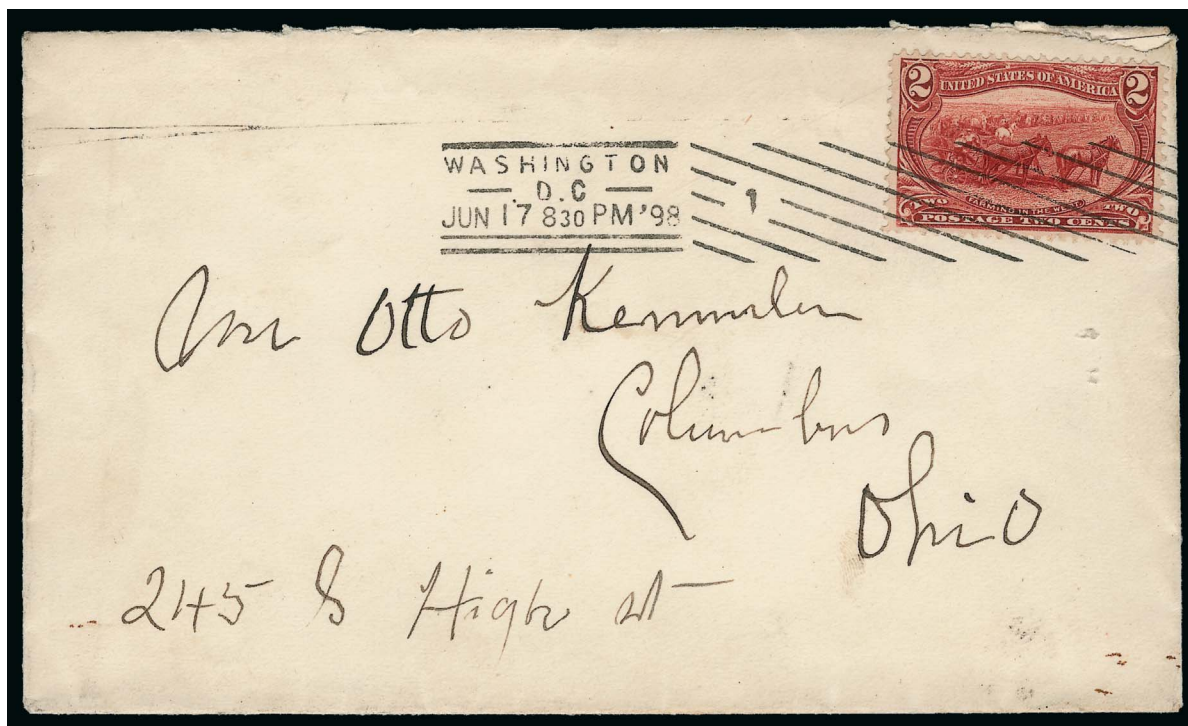 2 UNITED STATES OF AMERICA 2
FARMING IN THE WEST
TWO TWO
POSTAGE TWO CENTS
WASHINGTON
D.C
JUN 17 830 PM '98
1
Otto
Columbus
Ohio
245 S High st